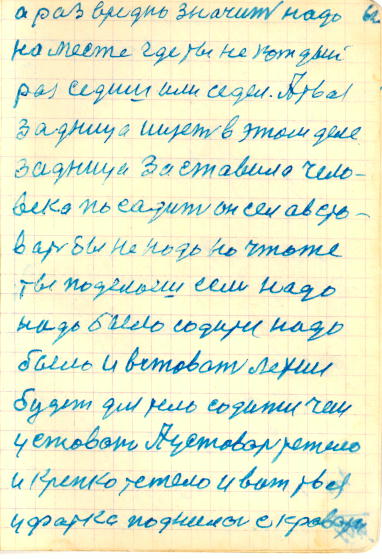 а раз вредно значит надо
на месте где ты не каждый
раз седиш или седел. А твая
задница ищет в этом деле
задница заставила чело-
века посадит он сел а всто-
ват бы не надо но что же
ты поделаеш если надо
надо было содитя надо
было и встоват лехии
будет для тело содити чем
устоват А устоват тетело
и крепко тетело и ват твая
и поднилас с кровати